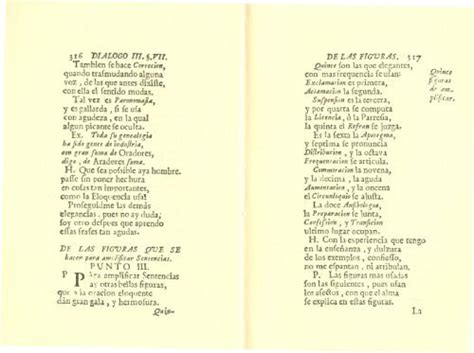 316 DIALOGO III. §. VII.
Tambien se hace Correcion,
quando trasmudando alguna
voz, de las que antes dixiste,
con ella el sentido modas.
Tal vez es Paronomasia,
y es gallarda, si se usa
con agudeza, en la qual
algun picante se oculta.
Ex. Toda su genealogia
ha sido gente de industria,
con gran fama de Oradores,
digo, de Aradores fama.
H. Que sea posible aya hombre,
passe sin poner hechura
en cosas tan importantes,
como la Eloquencia usa!
Proseguidme las demás
elegancias, pues no ay duda;
soy otro despues que aprendo
estas frases tan agudas.
DE LAS FIGURAS QUE SE
hacen para amplificar Sentencias.
PUNTO III.
P. PAra amplificar Sentencias
ay otras bellas figuras,
que à la oracion eloquente
dàn gran gala, y hermosura.
Quin-
DE LAS FIGURAS. 317
Quince son las que elegantes,
con mas frequencia se usan:
Exclamacion es primera,
Aclamacion la segunda.
Suspension es la tercera,
y por quarta se computa
la Licencia, ò la Parresia,
la quinta el Refran se juzga.
Es la sexta la Apotegma,
y septima se pronuncia
Distribucion, y la octava
Frequentacion se articula.
Commoracion la novena,
y la decima, la aguda
Aumentacion, y la oncena
el Circunloquio se ajusta.
La doce
la Preparacion se junta,
Confession, y Transicion
ultimo lugar ocupan.
H. Con la experiencia que tengo
en la enseñanza, y dulzura
de los exemplos, confiesso,
no me espantan, ni atribulan.
P. Las figuras mas usadas
son las siguientes, pues usan
los afectos, con que el alma
se explica en estas figuras.
La
Quince
figuras
de am-
plificar.